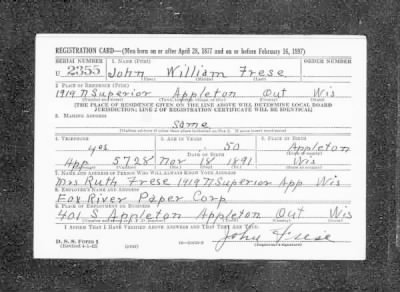 REGISTRATION CARD—(Men born on or after April 28, 1877 and on or before February 16, 1897)
SERIAL NUMBER 1. NAME (Print) ORDER NUMBER
U 2355 John William Frese
(First) (Middle) (Last)
2. PLACE OF RESIDENCE (Print)
1919 N Superior Appleton Out Wis
(Number and street) (Town, township, village, or city) (County) (State)
[THE PLACE OF RESIDENCE GIVEN ON THE LINE ABOVE WILL DETERMINE LOCAL BOARD
JURISDICTION; LINE 2 OF REGISTRATION CERTIFICATE WILL BE IDENTICAL]
3. MAILING ADDRESS
Same
[Mailing address if other than place indicated on line 2. If same insert word same]
4. TELEPHONE 5. AGE IN YEARS 6. PLACE OF BIRTH
yes 50 Appleton
DATE OF BIRTH
App 5728 Nov 18 1891 Wis
7. NAME AND ADDRESS OF PERSON WHO WILL ALWAYS KNOW YOUR ADDRESS
Mrs Ruth Frese 1919 N Superior App Wis
8. EMPLOYER'S NAME AND ADDRESS
Fox River Paper Corp
9. PLACE OF EMPLOYMENT OR BUSINESS
401 S Appleton Appleton Out Wis
(Number and street or R. F. D. number) (Town) (County) (State)
I AFFIRM THAT I HAVE VERIFIED ABOVE ANSWERS AND THAT THEY ARE TRUE.
D. S. S. Form 1
(Revised 4-1-42) (over) John Frese
(Registrant's signature)